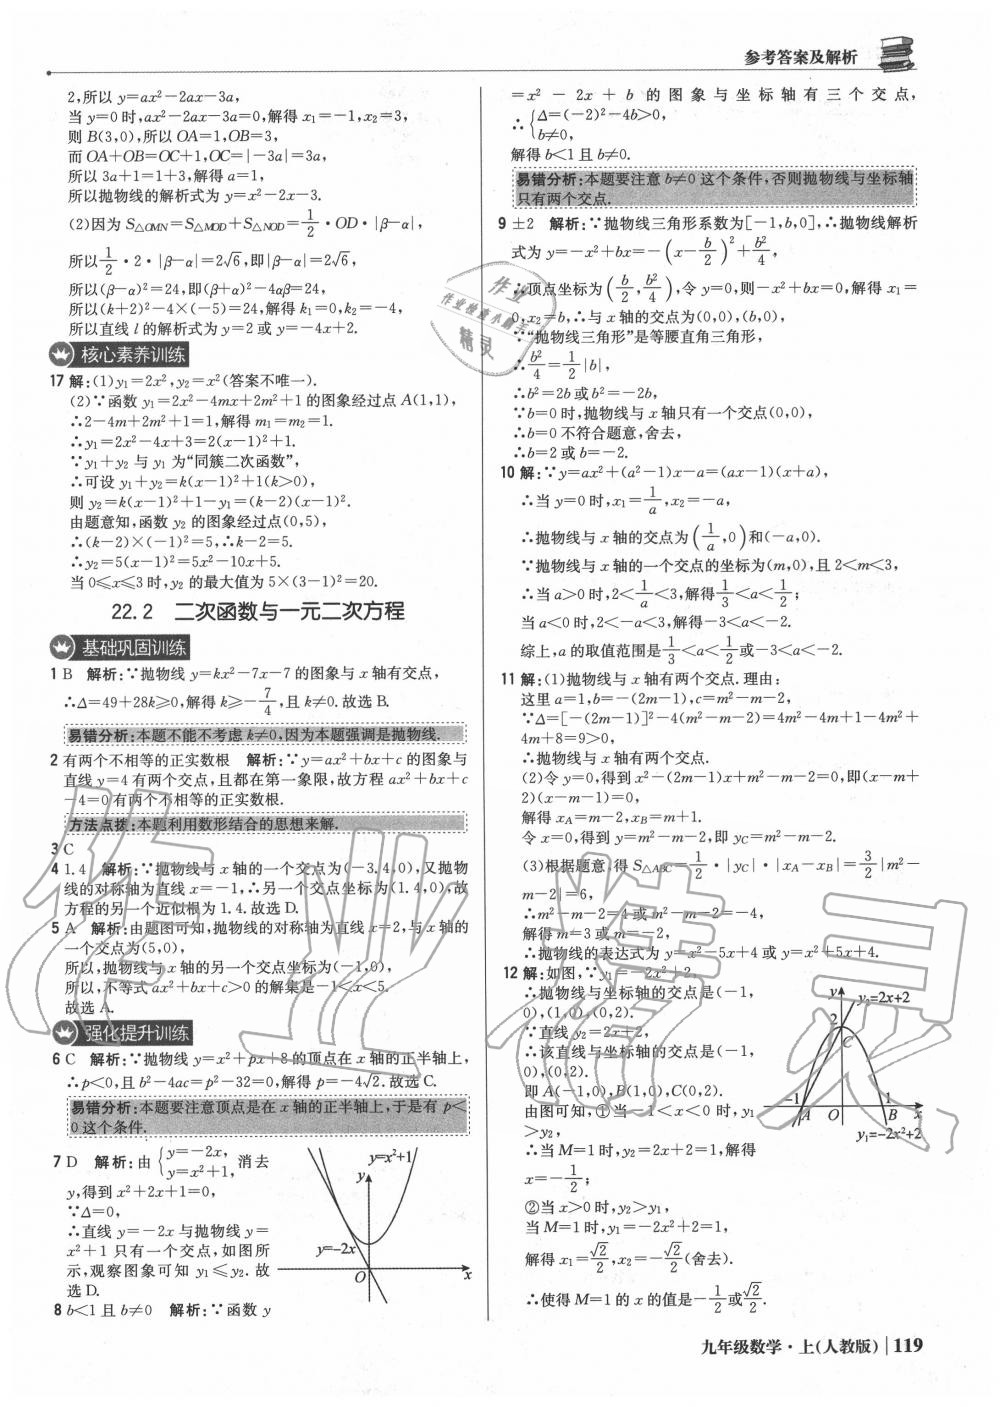 参考答案及解析
2,所以 y=ax²-2ax-3a,
当 y=0 时,ax²-2ax-3a=0,解得 x₁=-1,x₂=3,
则 B(3,0),所以 OA=1,OB=3,
而 OA+OB=OC+1,OC=|-3a|=3a,
所以 3a+1=1+3,解得 a=1,
所以抛物线的解析式为 y=x²-2x-3.
(2)因为 S△OMN=S△MOD+S△NOD=1/2·OD·|β-α|,
所以1/2·2·|β-α|=2√6,即|β-α|=2√6,
所以(β-α)²=24,即(β+α)²-4αβ=24,
所以(k+2)²-4×(-5)=24,解得 k₁=0,k₂=-4,
所以直线 l 的解析式为 y=2 或 y=-4x+2.
核心素养训练
17 解:(1)y₁=2x²,y₂=x²(答案不唯一).
(2)∵函数 y₁=2x²-4mx+2m²+1 的图象经过点 A(1,1),
∴2-4m+2m²+1=1,解得 m₁=m₂=1.
∴y₁=2x²-4x+3=2(x-1)²+1.
∵y₁+y₂ 与 y₁ 为“同簇二次函数”,
∴可设 y₁+y₂=k(x-1)²+1(k>0),
则 y₂=k(x-1)²+1-y₁=(k-2)(x-1)².
由题意知,函数 y₂ 的图象经过点(0,5),
∴(k-2)×(-1)²=5,∴k-2=5.
∴y₂=5(x-1)²=5x²-10x+5.
当 0≤x≤3 时,y₂ 的最大值为 5×(3-1)²=20.
22.2 二次函数与一元二次方程
基础巩固训练
1 B 解析:∵抛物线 y=kx²-7x-7 的图象与 x 轴有交点,
∴Δ=49+28k≥0,解得 k≥-7/4,且 k≠0.故选 B.
易错分析:本题不能不考虑 k≠0,因为本题强调是抛物线.
2 有两个不相等的正实数根 解析:∵y=ax²+bx+c 的图象与
直线 y=4 有两个交点,且都在第一象限,故方程 ax²+bx+c
-4=0 有两个不相等的正实数根.
方法点拨:本题利用数形结合的思想来解.
3 C
4 1.4 解析:∵抛物线与 x 轴的一个交点为(-3.4,0),又抛物
线的对称轴为直线 x=-1,∴另一个交点坐标为(1.4,0),故
方程的另一个近似根为 1.4.故选 D.
5 A 解析:由题图可知,抛物线的对称轴为直线 x=2,与 x 轴的
一个交点为(5,0),
所以,抛物线与 x 轴的另一个交点坐标为(-1,0),
所以,不等式 ax²+bx+c>0 的解集是-1<x<5.
故选 A.
强化提升训练
6 C 解析:∵抛物线 y=x²+px+8 的顶点在 x 轴的正半轴上,
∴p<0,且 b²-4ac=p²-32=0,解得 p=-4√2.故选 C.
易错分析:本题要注意顶点是在 x 轴的正半轴上,于是有 p<
0 这个条件.
7 D 解析:由 {y=-2x, y=x²+1, 消去
y,得到 x²+2x+1=0,
∵Δ=0,
∴直线 y=-2x 与抛物线 y=
x²+1 只有一个交点,如图所
示,观察图象可知 y₁≤y₂.故
选 D.
y=x²+1
y
y=-2x
O
x
8 b<1 且 b≠0 解析:∵函数 y
=x²-2x+b 的图象与坐标轴有三个交点,
∴{Δ=(-2)²-4b>0, b≠0,
解得 b<1 且 b≠0.
易错分析:本题要注意 b≠0 这个条件,否则抛物线与坐标轴
只有两个交点.
9 ±2 解析:∵抛物线三角形系数为[-1,b,0],∴抛物线解析
式为 y=-x²+bx=-(x-b/2)²+b²/4,
∴顶点坐标为(b/2,b²/4),令 y=0,则-x²+bx=0,解得 x₁=
0,x₂=b,∴与 x 轴的交点为(0,0),(b,0),
∵“抛物线三角形”是等腰直角三角形,
∴b²/4=1/2|b|,
∴b²=2b 或 b²=-2b,
∵b=0 时,抛物线与 x 轴只有一个交点(0,0),
∴b=0 不符合题意,舍去,
∴b=2 或 b=-2.
10 解:∵y=ax²+(a²-1)x-a=(ax-1)(x+a),
∴当 y=0 时,x₁=1/a,x₂=-a,
∴抛物线与 x 轴的交点为(1/a,0)和(-a,0).
∵抛物线与 x 轴的一个交点的坐标为(m,0),且 2<m<3,
∴当 a>0 时,2<1/a<3,解得1/3<a<1/2;
当 a<0 时,2<-a<3,解得-3<a<-2.
综上,a 的取值范围是1/3<a<1/2或-3<a<-2.
11 解:(1)抛物线与 x 轴有两个交点.理由:
这里 a=1,b=-(2m-1),c=m²-m-2,
∵Δ=[-(2m-1)]²-4(m²-m-2)=4m²-4m+1-4m²+
4m+8=9>0,
∴抛物线与 x 轴有两个交点.
(2)令 y=0,得到 x²-(2m-1)x+m²-m-2=0,即(x-m+
2)(x-m-1)=0,
解得 xA=m-2,xB=m+1.
令 x=0,得到 y=m²-m-2,即 yC=m²-m-2.
(3)根据题意,得 S△ABC=1/2·|yC|·|xA-xB|=3/2|m²-
m-2|=6,
∴m²-m-2=4 或 m²-m-2=-4,
解得 m=3 或 m=-2,
∴抛物线的表达式为 y=x²-5x+4 或 y=x²+5x+4.
12 解:如图,∵y₁=-2x²+2,
∴抛物线与坐标轴的交点是(-1,
0),(1,0),(0,2).
∵直线 y₂=2x+2,
∴该直线与坐标轴的交点是(-1,
0),(0,2).
即 A(-1,0),B(1,0),C(0,2).
由图可知,①当-1<x<0 时,y₁
>y₂,
∴当 M=1 时,y₂=2x+2=1,解得
x=-1/2;
②当 x>0 时,y₂>y₁,
当 M=1 时,y₁=-2x²+2=1,
解得 x₁=√2/2,x₂=-√2/2(舍去).
∴使得 M=1 的 x 的值是-1/2或√2/2.
y
y₂=2x+2
2
C
-1
1
A O B x
y₁=-2x²+2
作业
作业检查小助手
精灵
作业精灵
九年级数学·上(人教版) 119